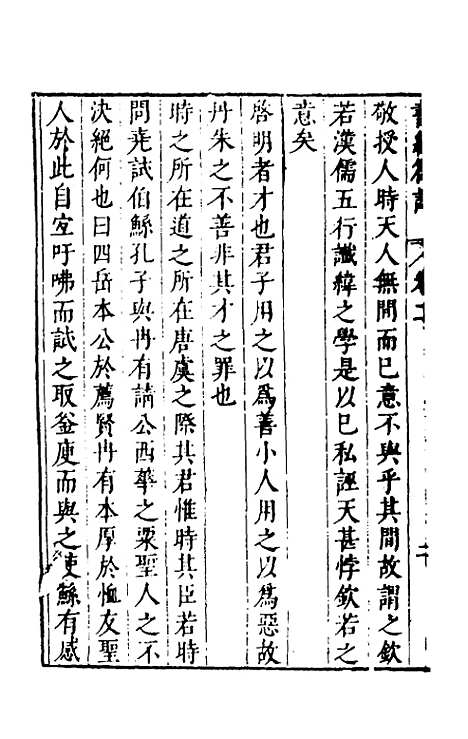 敬授人時天人無間而已意不與乎其間故謂之欽
若漢儒五行讖緯之學是以巳私誣天甚悖欽若之
意矣
啓明者才也君子用之以為善小人用之以為惡故
丹朱之不善非其才之罪也
時之所在道之所在唐虞之際其君惟時其臣若時
問堯試伯鯀孔子與冉有請公西華之粟聖人之不
決絕何也曰四岳本公於薦賢冉有本厚於恤友聖
人於此自宜吁咈而試之取釜庾而與之使鯀有感